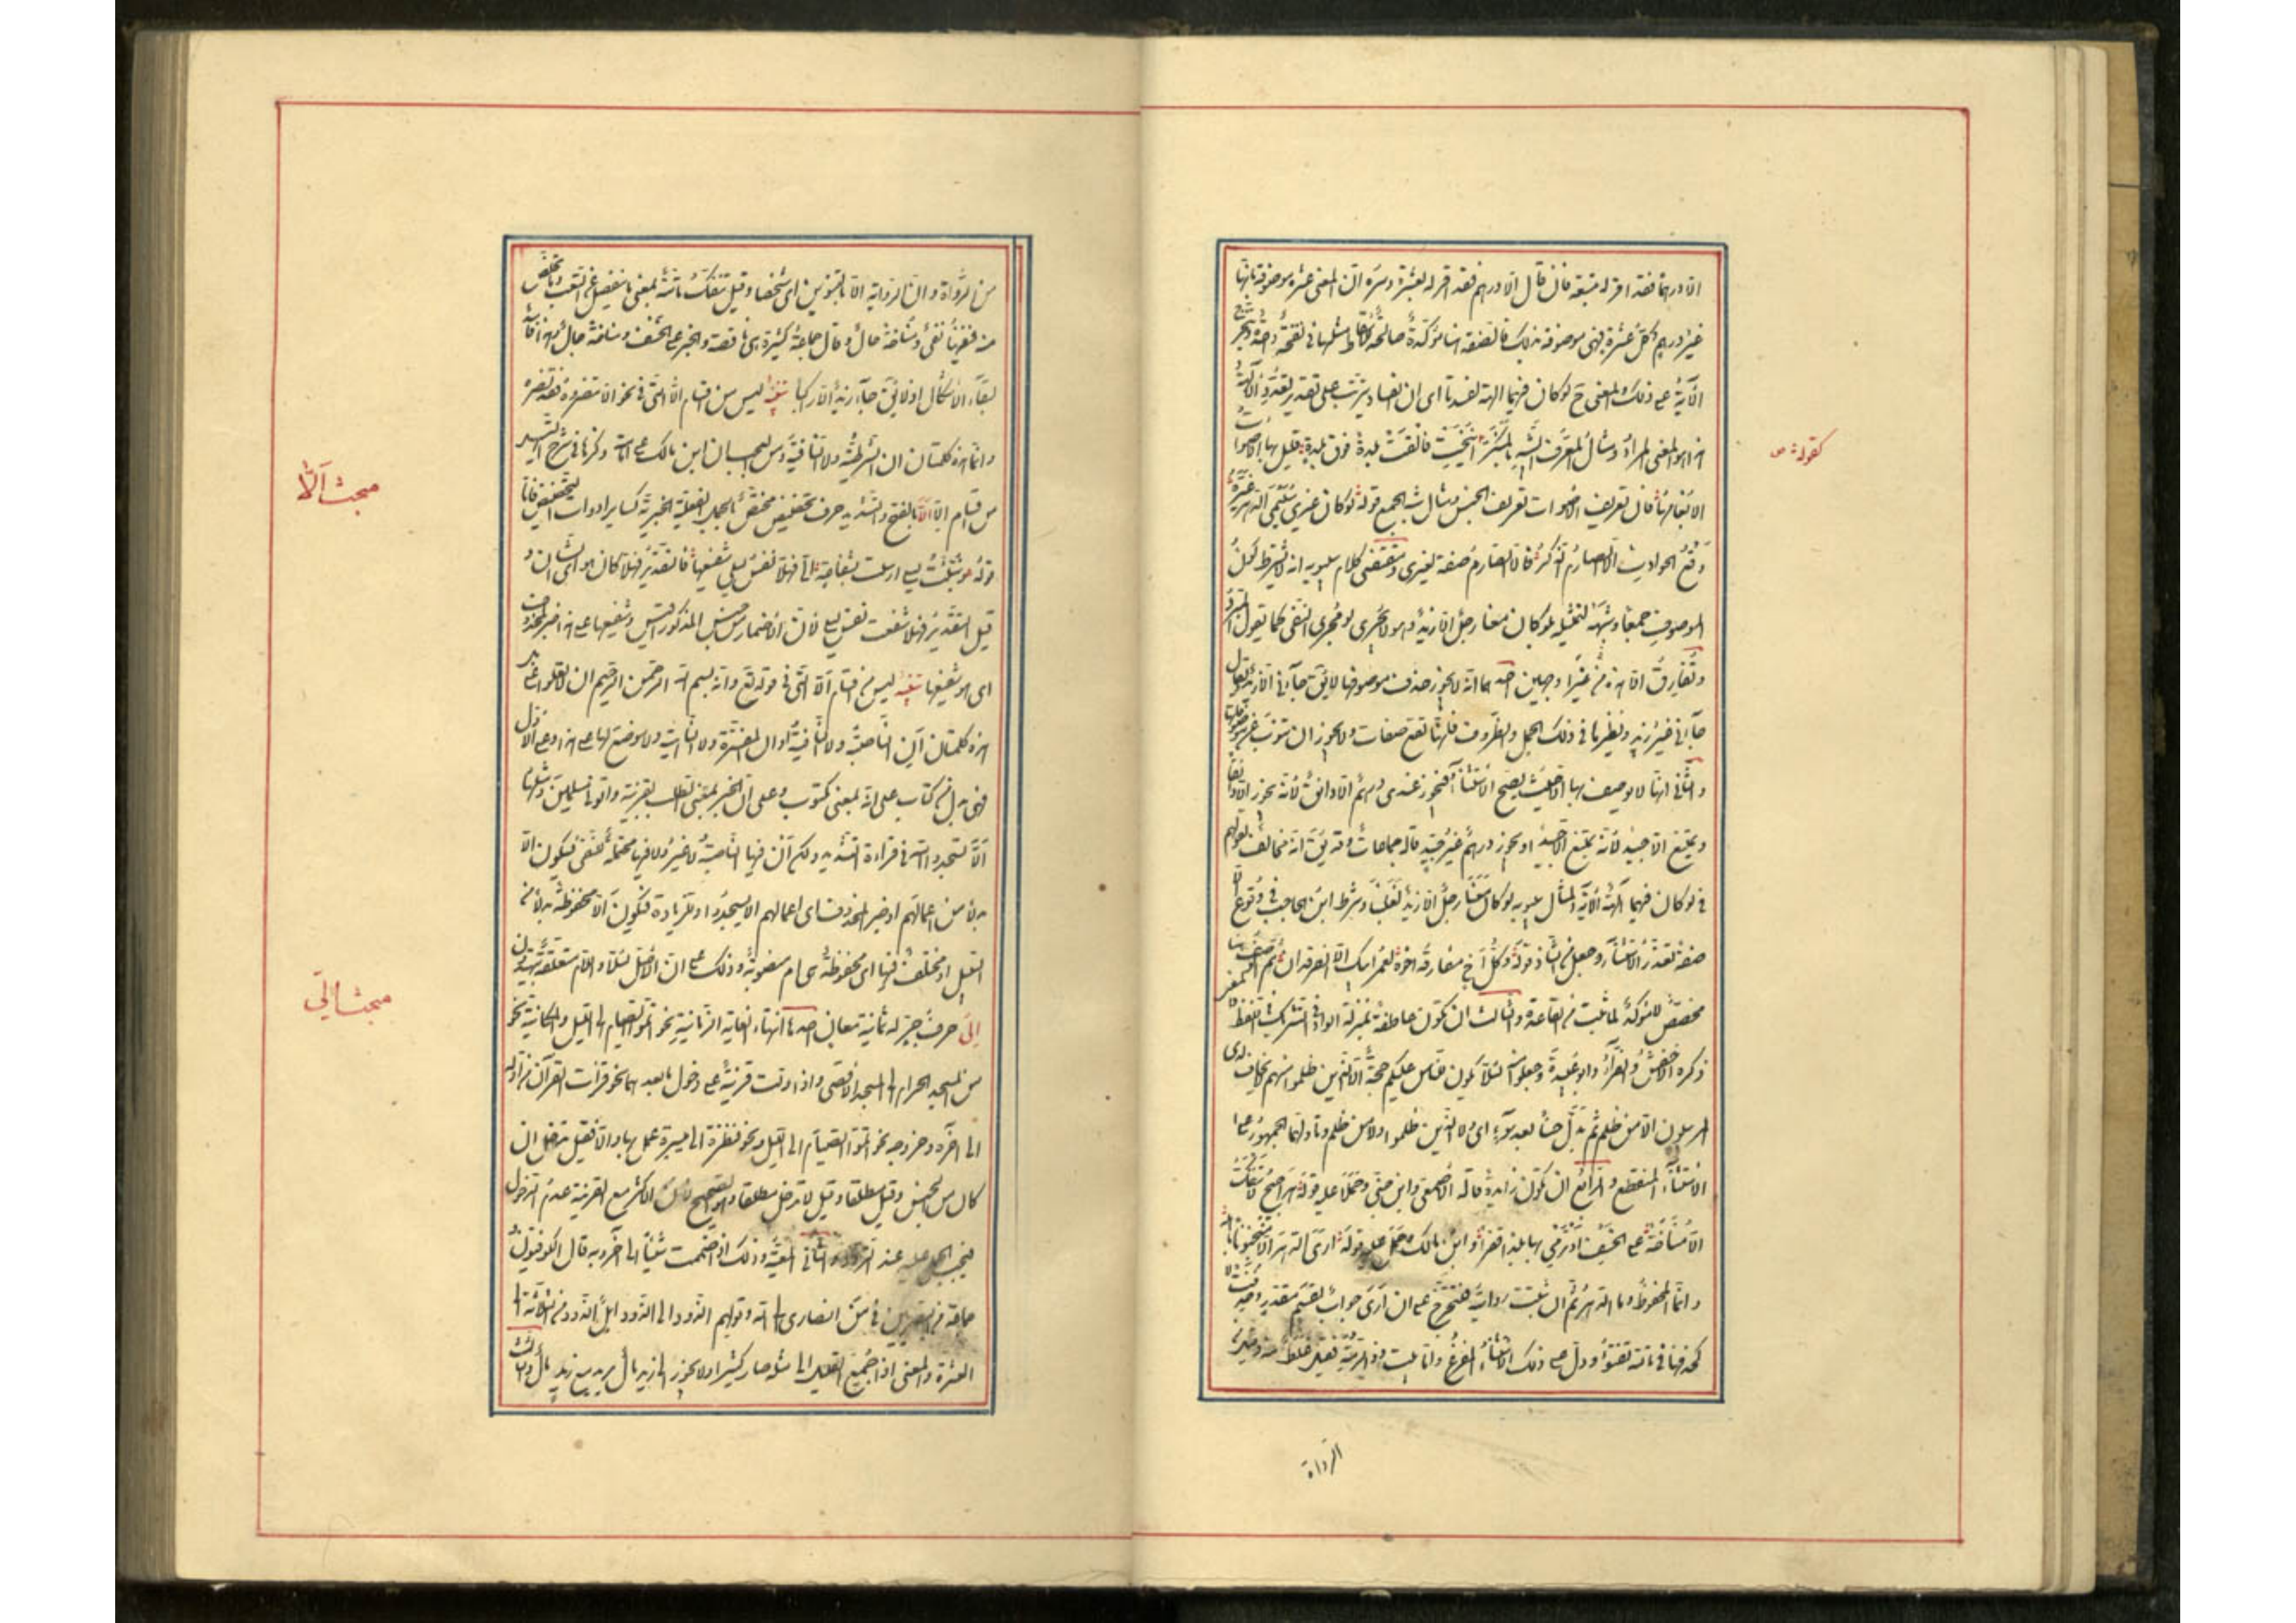 الا درهما فقد اقر له بتسعة فان قال الا درهم فقد اقر له بعشرة وسره ان المعنى عشرة موصوفة بانها
غير درهم وكل عشرة فهى موصوفة بذلك فالصفة هنا مؤكدة صالحة للاسقاط مثلها فى نفخة واحدة وتتخرج
الآية على ذلك والمعنى ح لو كان فيهما آلهة لفسدتا اى ان الفساد يترتب على تقدير تعدد الآلهة
وهذا هو المعنى المراد ومثال المعرف الشبيه بالمنكر انيخت فالقت بلدة فوق بلدة قليل بها الاصوات
كقوله ص
الا بغامها فان تعريف الاصوات تعريف الجنس ومثال شبه الجمع قوله لو كان غيرى سليمى الدهر غيره
وقع الحوادث الا الصارم الذكر فالا الصارم صفة لغيرى ومقتضى كلام سيبويه انه لا يشترط كون
الموصوف جمعا او شبهه لتمثيله بلو كان معنا رجل الا زيد وهو لا يجرى لو مجرى النفى كما يقول المبرد
وتفارق الا هذه غيرا من وجهين احدهما انه لا يجوز حذف موصوفها لا يق جاءنى الا زيد ويقال
جاءنى غير زيد ونظيرها فى ذلك الجمل والظروف فانها تقع صفات ولا يجوز ان تنوب عن موصوفاتها
والثانى انها لا يوصف بها الا حيث يصح الاستثناء فيجوز عندى درهم الا دانق لانه يجوز الا دانقا
ويمتنع الا جيد لانه يمتنع الا جيدا ويجوز درهم غير جيد قاله جماعات وقد يق انه مخالف لقولهم
فى لو كان فيهما آلهة الآية ولمثال سيبويه لو كان معنا رجل الا زيد لغلبنا وشرط ابن الحاجب فى وقوع الا
صفة تعذر الاستثناء وجعل من الشاذ قوله وكل اخ مفارقه اخوه لعمر ابيك الا الفرقدان
مخصص لا مؤكد لما ثبت من القاعدة والثالث ان تكون عاطفة بمنزلة الواو فى التشريك فى اللفظ والمعنى
ذكره الاخفش والفراء وابو عبيدة وجعلوا منه لئلا يكون للناس عليكم حجة الا الذين ظلموا منهم لا يخاف لدى
المرسلون الا من ظلم ثم بدل حسنا بعد سوء اى ولا الذين ظلموا ولا من ظلم وتأولهما الجمهور على
الاستثناء المنقطع والرابع ان تكون زايدة قاله الاصمعى وابن جنى وحملا عليه قوله حراجيج لا تنفك
الا مناخة على الخسف او نرمى بها بلدا قفرا وابن مالك وحمل عليه قوله ارى الدهر الا منجنونا باهله
وانما المحفوظ وما الدهر ثم ان ثبتت روايته فتتخرج على ان ارى جواب لقسم مقدر وحذفت لا
كحذفها فى تالله تفتؤ ودل على ذلك الاستثناء المفرغ واما بيت ذى الرمة فقيل غلط منه وقيل
الرواة
من الرواة وان الرواية الا بالتنوين اى شخصا وقيل تنفك تامة بمعنى ما تنفصل عن التعب او ما تخلص
منه فنفيها نفى ومناخة حال وقال جماعة كثيرة هى ناقصة والخبر على الخسف ومناخة حال وهذا فاسد
لبقاء الاشكال اذ لا يق جاء زيد الا راكبا تنبيه ليس من اقسام الا التى فى نحو الا تنصروه فقد نصره
وانما هذه كلمتان ان الشرطية ولا النافية ومن العجب ان ابن مالك على امامته ذكرها فى شرح التسهيل
مبحث الّا
من اقسام الا الا بالفتح والتشديد حرف تحضيض مختص بالجمل الفعلية الخبرية كساير ادوات التحضيض فاما
قوله ونبئت ليلى ارسلت بشفاعة الى فهلا نفس ليلى شفيعها فالتقدير فهلا كان هو اى الشان و
قيل التقدير فهلا شفعت نفس ليلى لان الاضمار من جنس المذكور اقيس وشفيعها على هذا خبر لمحذوف
اى هو شفيعها تنبيه ليس من اقسام الا التى فى قوله تع وانه بسم الله الرحمن الرحيم ان لا تعلوا على بل
هذه كلمتان ان الناصبة ولا النافية او ان المفسرة ولا الناهية ولا موضع لها على هذا وعلى الاول
فهى بدل من كتاب على انه بمعنى مكتوب وعلى ان الخبر بمعنى الطلب بقرينة واتونى مسلمين ومثلها
الا يسجدوا لله فى قراءة التشديد ولكن ان فيها الناصبة لا غير ولا فيها محتملة للنفى فيكون الا
بدلا من اعمالهم او خبر المحذوف اى اعمالهم الا يسجدوا وللزيادة فتكون الا مخفوضة بدلا من
السبيل او مختلف فيها اى مخفوضة هى ام منصوبة وذلك على ان الاصل لئلا واللام متعلقة بيهتدون
مبحث الى
الى حرف جر له ثمانية معان احدها انتهاء الغاية الزمانية نحو اتموا الصيام الى الليل والمكانية نحو
من المسجد الحرام الى المسجد الاقصى واذا دلت قرينة على دخول ما بعدها نحو قرأت القرآن من اوله
الى آخره وخروجه نحو اتموا الصيام الى الليل ونحو فنظرة الى ميسرة عمل بها والا فقيل يدخل ان
كان من الجنس وقيل مطلقا وقيل لا يدخل مطلقا وهو الصحيح لان الاكثر مع القرينة عدم الدخول
فيجب الحمل عليه عند التردد والثانى المعية وذلك اذا ضممت شيئا الى آخر وبه قال الكوفيون
جماعة من البصريين فى من انصارى الى الله وقولهم الذود الى الذود ابل والذود من ثلاثة الى
العشرة والمعنى اذا جمع القليل الى مثله صار كثيرا ولا يجوز الى زيد مال يريد مع زيد مال والثالث